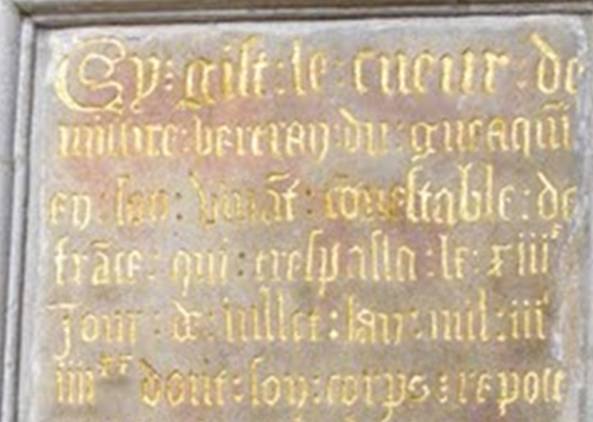 Cy : gist : le : cueur : de
missire : bertran : du : gueaqui͞
en : son : vivāt : cōnestable : de
frāce : qui : trespassa : le : xiiiᵉ
Jour : de : iullet : lan : mil : iiiᶜ
iiiiˣˣ dont : son : corps : repose